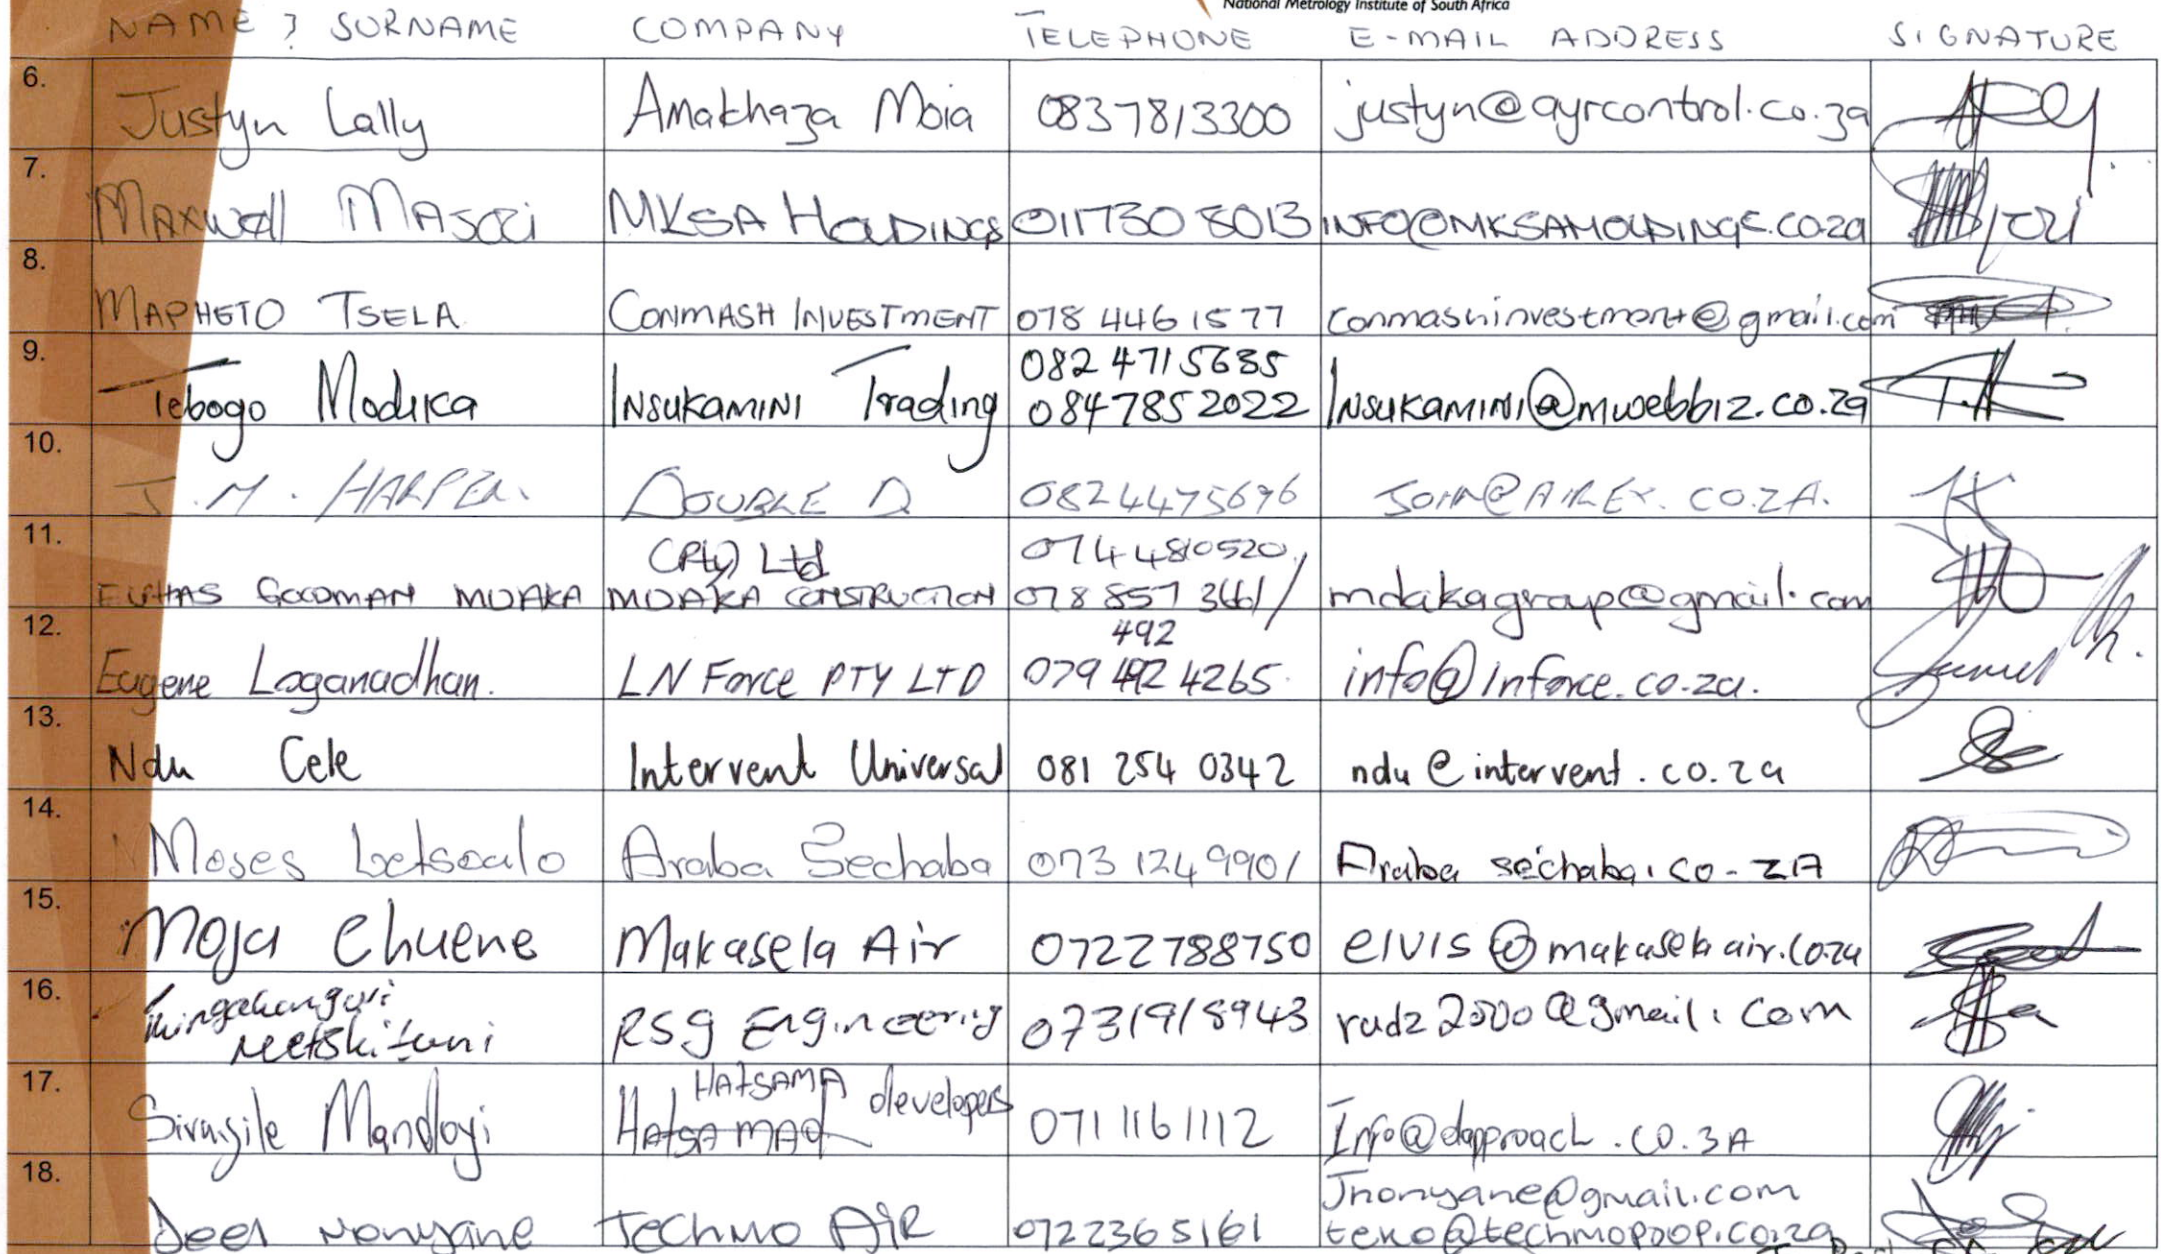 National Metrology Institute of South Africa
NAME & SURNAME COMPANY TELEPHONE E-MAIL ADDRESS SIGNATURE
6. Justyn Lally Amakhaza Moia 0837813300 justyn@ayrcontrol.co.za
7. MAXWell MASOCI MKSA HOLDINGS 011730 8013 INFO@MKSAHOLDINGS.CO.ZA
8. MAPHETO TSELA CONMASH INVESTMENT 078 446 1577 conmashinvestment@gmail.com
9. Tebogo Moduca INSUKAMINI Trading 082 4715635
0847852022 INSUKAMINI@mwebbiz.co.za
10. J.M. HARPER. DOUBLE D 0824475696 JOHN@AIREX.CO.ZA.
11. (Pty) Ltd 0744810520/
GOODMAN MDAKA MDAKA CONSTRUCTION 078 857 3661/ mdakagroup@gmail.com
12. 492
Eugene Loganadhan. LN Force PTY LTD 079 492 4265 info@lnforce.co.za.
13. Ndu Cele Intervent Universal 081 254 0342 ndu@intervent.co.za
14. Moses Letsoalo Araba Sechaba 073 124 9901 Araba sechaba.co-ZA
15. Moja Chuene Makasela Air 0722788750 elvis@makaselaair.co.za
16. RSG Engineering 0731918943 rudz2000@gmail.com
17. HATSAMA developers
Mandoyi HATSAMAD 071 1161112 Info@dapproach.co.ZA
18. Jnonyane@gmail.com
Nonyane Techmo AIR 0722365161 teko@techmopoop.co.za